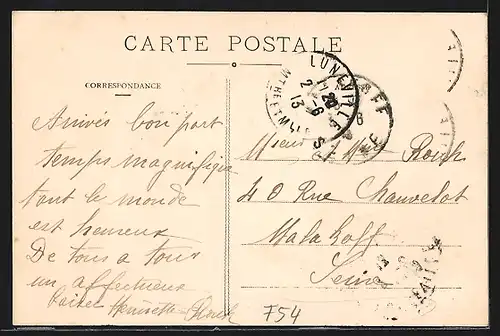 CARTE POSTALE
CORRESPONDANCE
Arrivés bon port
temps magnifique
tout le monde
est heureux
De tous a tous
un affectueux
baiser Henriette
LUNEVILLE
20
2 -6
13
Msieur Mme
40 Rue Chauvelot
Malakoff
Seine
F54